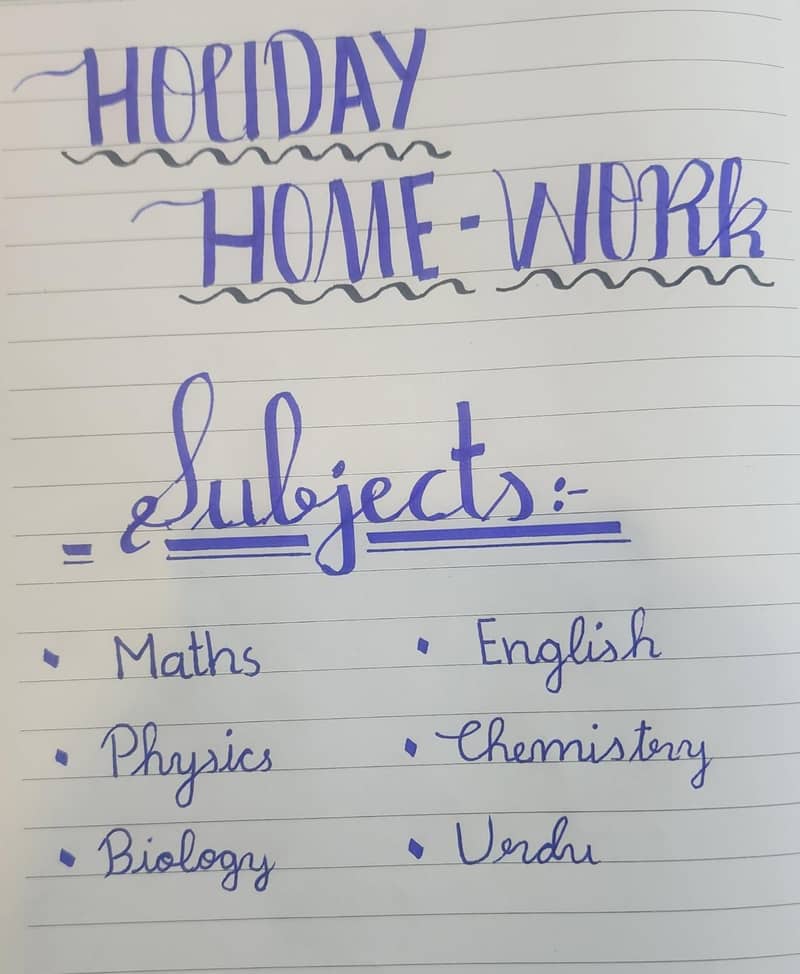 HOLIDAY
HOME-WORK
Subjects:-
• Maths • English
• Physics • Chemistry
• Biology • Urdu